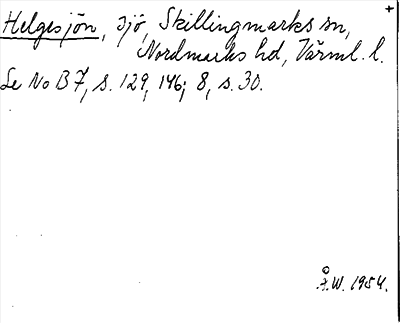 +
Helgesjön, sjö, Skillingmarks sn,
Nordmarks hd, Värml. l.
Se No B 7, s. 129, 146; 8, s. 30.
Å.W. 1954.